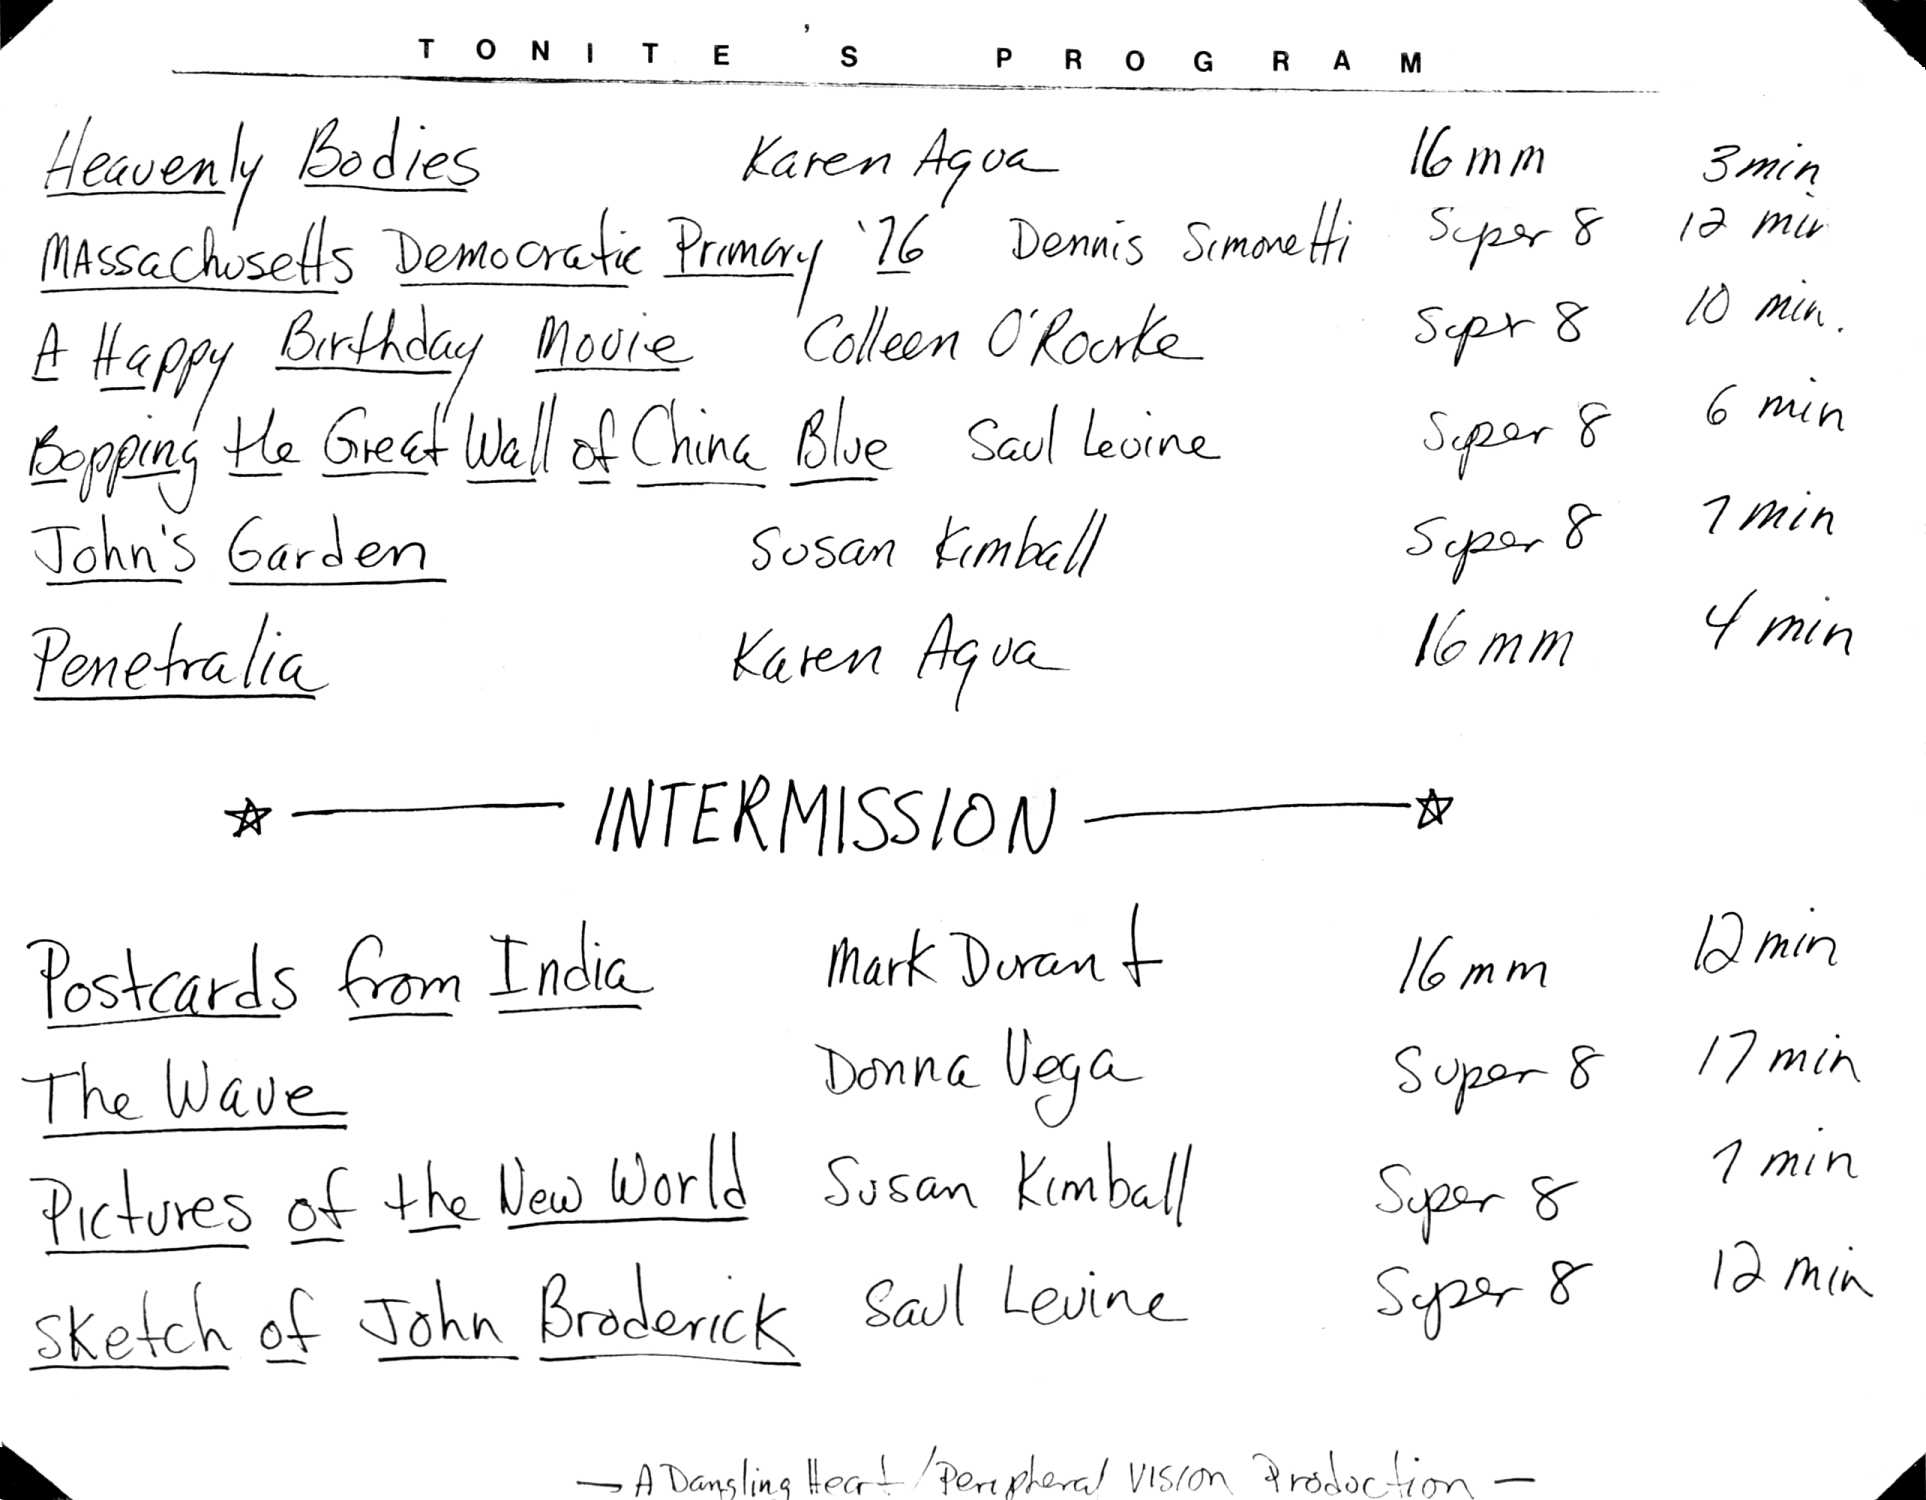 TONITE'S PROGRAM
Heavenly Bodies Karen Aqua 16mm 3min
Massachusetts Democratic Primary '76 Dennis Simonetti Super 8 12 min
A Happy Birthday Movie Colleen O'Rourke Supr 8 10 min.
Bopping the Great Wall of China Blue Saul Levine Super 8 6 min
John's Garden Susan Kimball Super 8 7 min
Penetralia Karen Aqua 16mm 4 min
☆ — INTERMISSION — ☆
Postcards from India Mark Durant 16mm 12 min
The Wave Donna Vega Super 8 17 min
Pictures of the New World Susan Kimball Super 8 7 min
Sketch of John Broderick Saul Levine Super 8 12 min
— A Dangling Heart / Peripheral Vision Production —